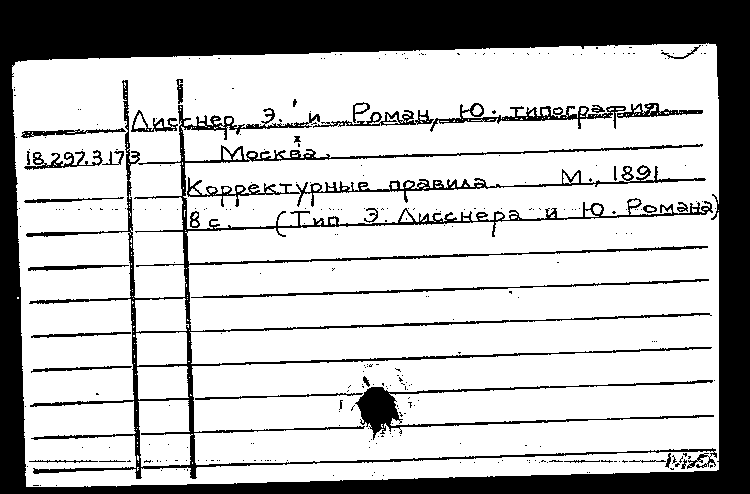 Лисснер, Э. и Роман, Ю., типография.
18.297.3.173 Москва.
Корректурные правила. М., 1891
8 с. (Тип. Э. Лисснера и Ю. Романа)